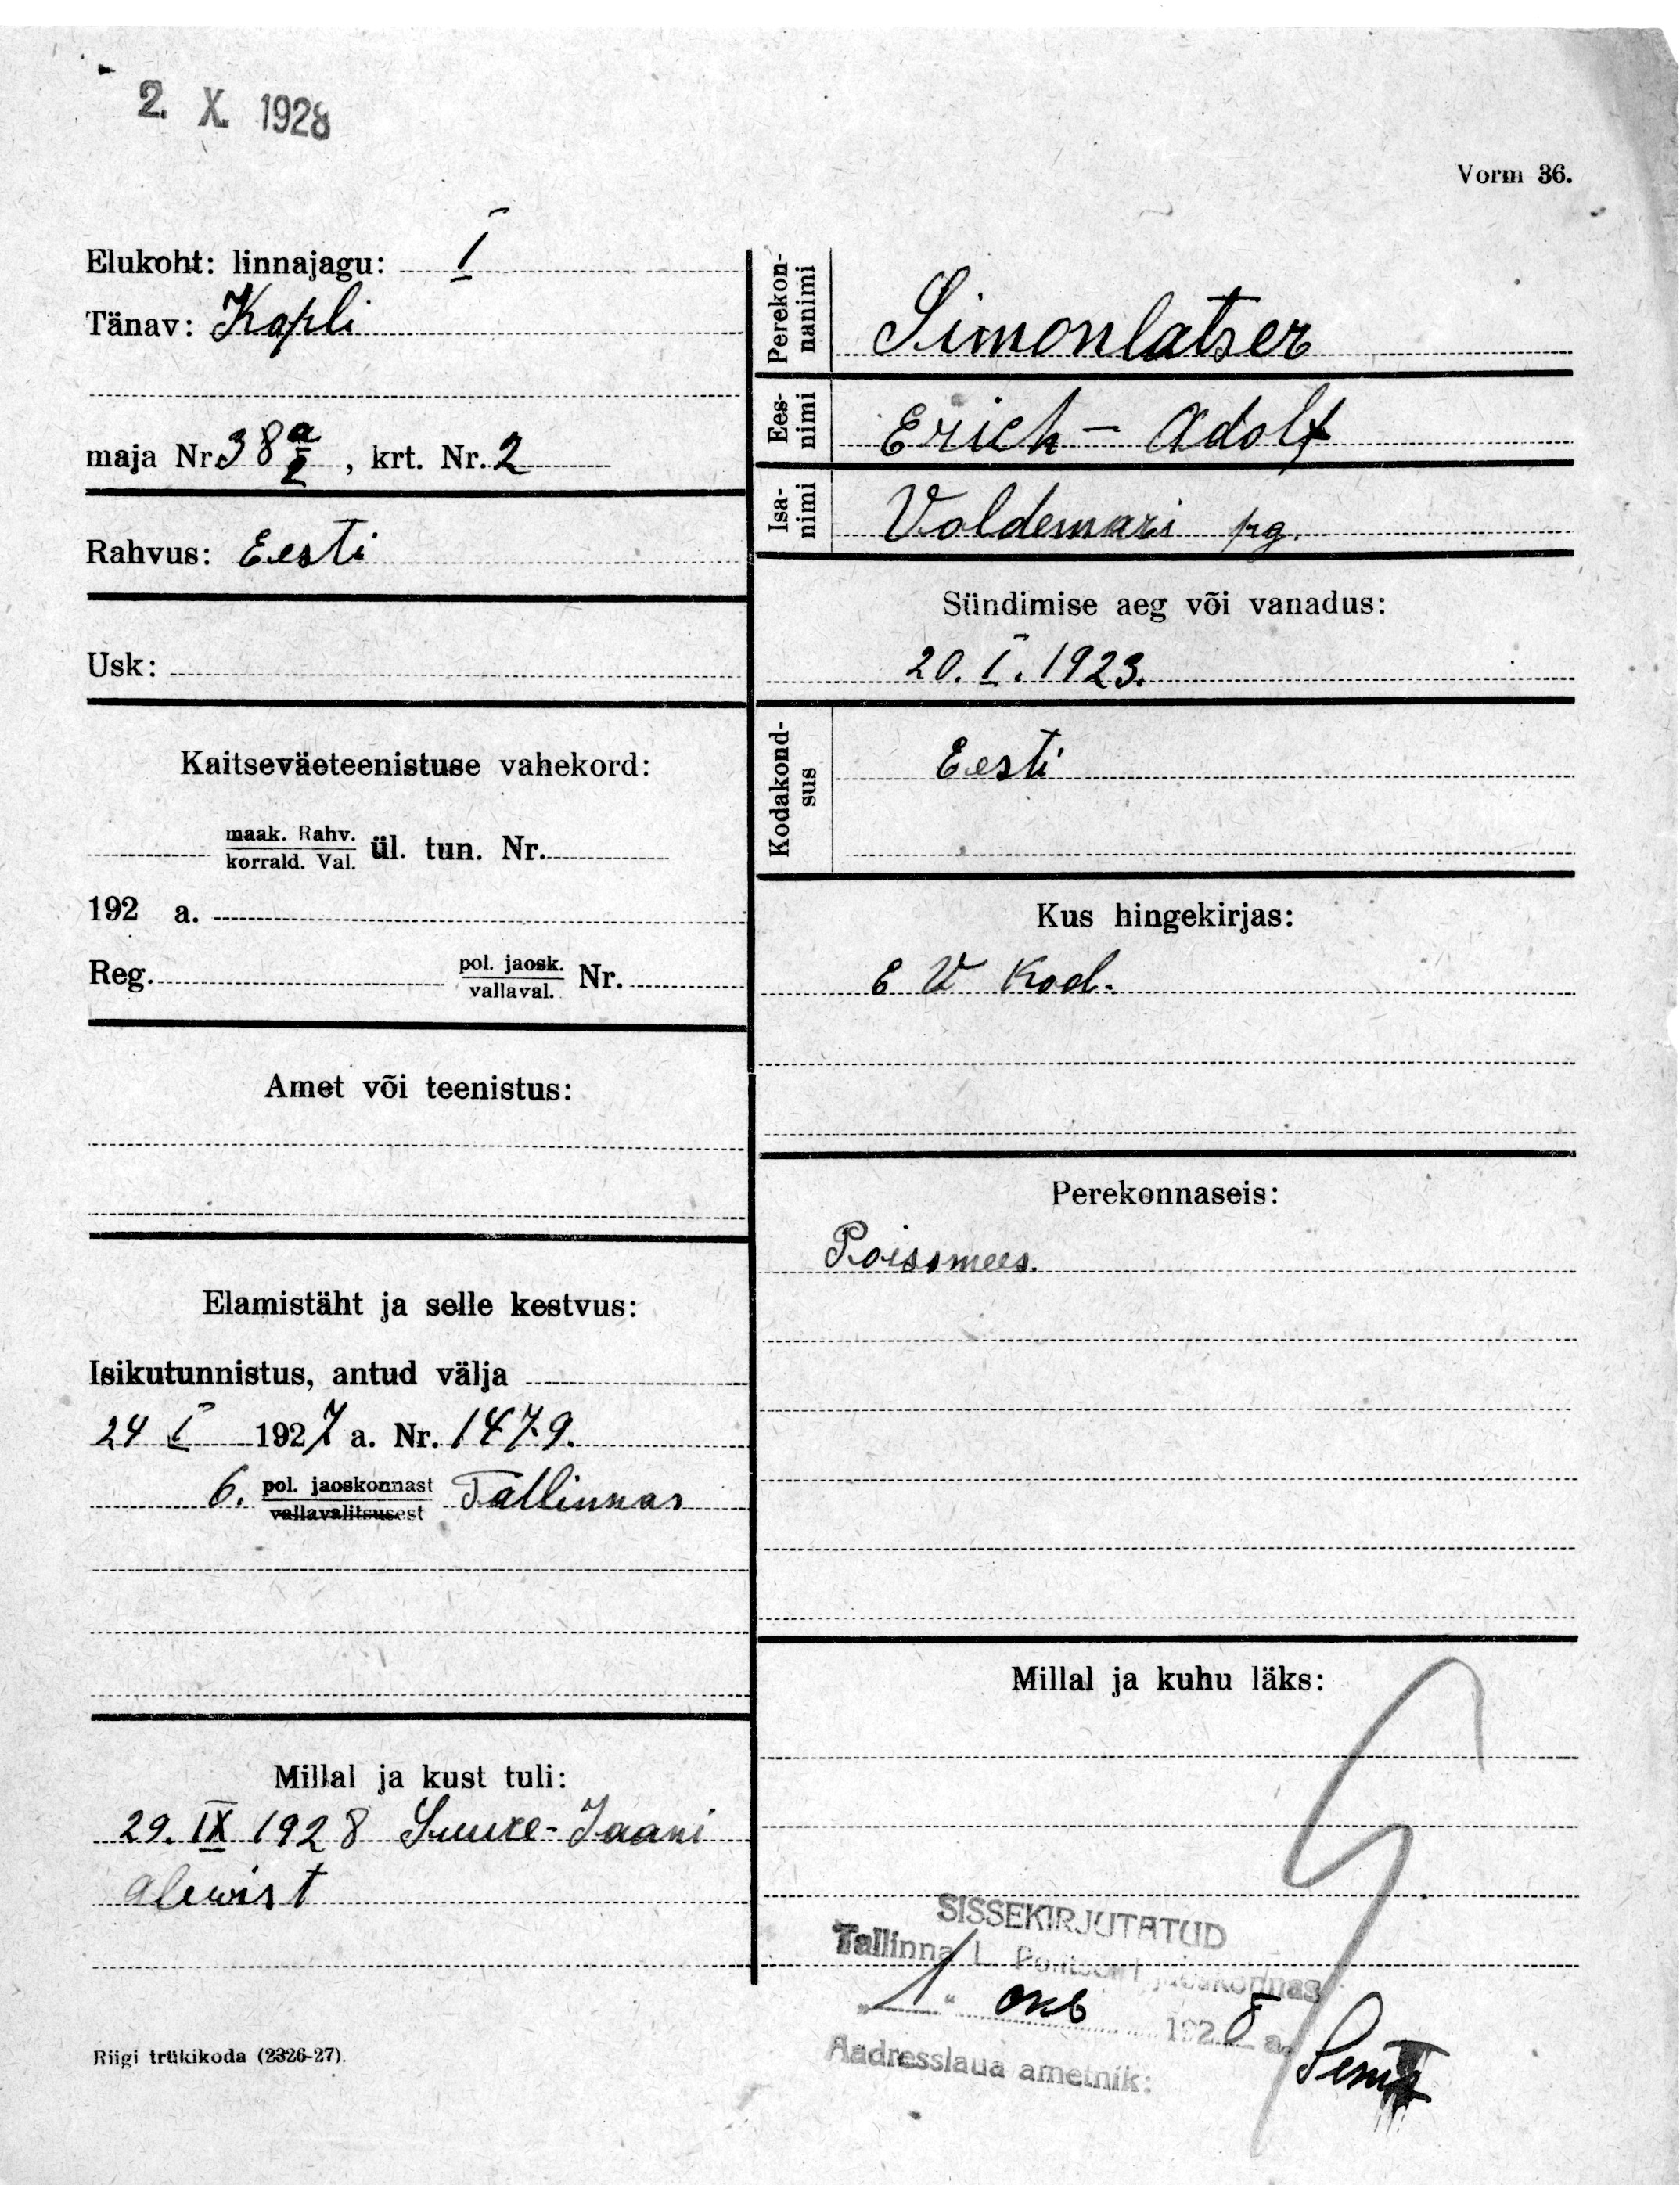 2. X. 1928
Vorm 36.
Elukoht: linnajagu: I
Tänav: Kopli
maja Nr 38 a/2, krt. Nr. 2
Rahvus: Eesti
Usk:
Kaitseväeteenistuse vahekord:
maak. Rahv.
korrald. Val. ül. tun. Nr.
192 a.
Reg. pol. jaosk.
vallaval. Nr.
Amet või teenistus:
Elamistäht ja selle kestvus:
Isikutunnistus, antud välja
24 I 1927 a. Nr. 1479.
6. pol. jaoskonnast Tallinnas
vallavalitsusest
Millal ja kust tuli:
29. IX 1928 Suure-Jaani
alewist
Riigi trükikoda (2326-27).
Perekon-
nanimi Simonlatser
Ees-
nimi Erich - Adolf
Isa-
nimi Voldemari pg.
Sündimise aeg või vanadus:
20. I. 1923.
Kodakond-
sus Eesti
Kus hingekirjas:
E V Kod.
Perekonnaseis:
Poissmees.
Millal ja kuhu läks:
SISSEKIRJUTATUD
Tallinna L. Politsei jaoskonnas
"1" okb 1928 a.
Aadresslaua ametnik: